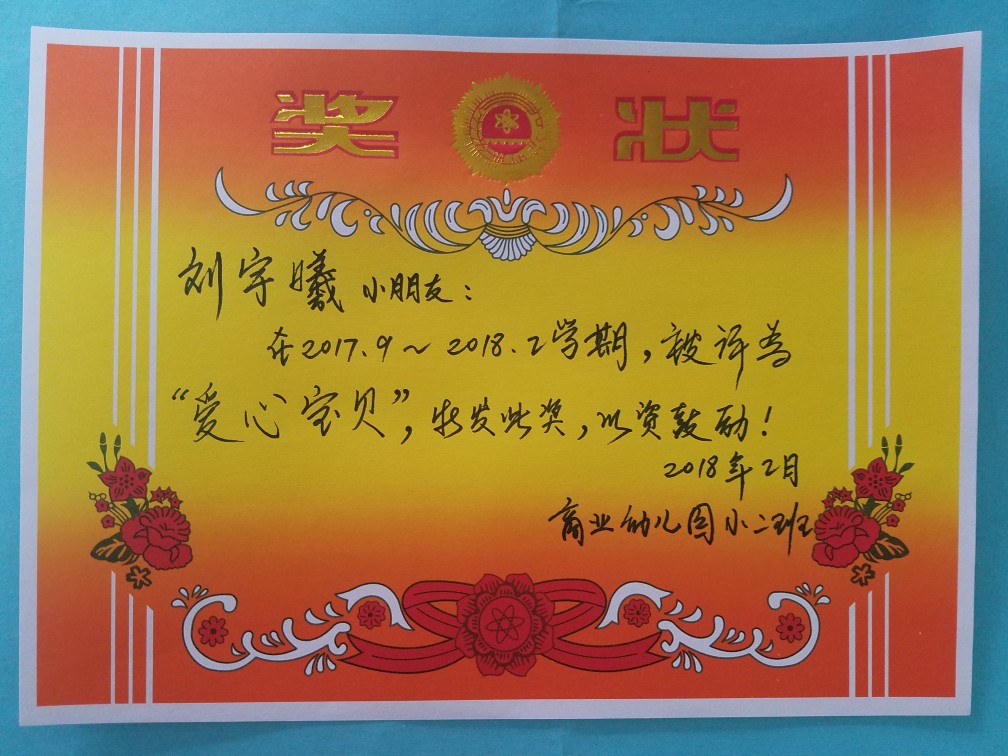 奖状
刘宇曦小朋友：
在2017.9～2018.2学期，被评为
“爱心宝贝”，特发此奖，以资鼓励！
2018年2月
商业幼儿园小二班